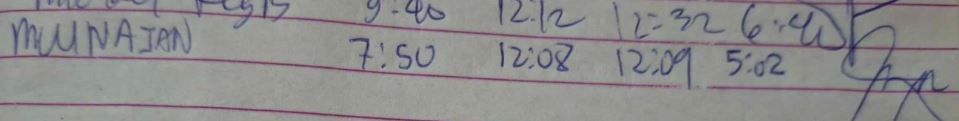 9:40 12:12 12:32 6:40
MUNAJAN 7:50 12:08 12:09 5:02